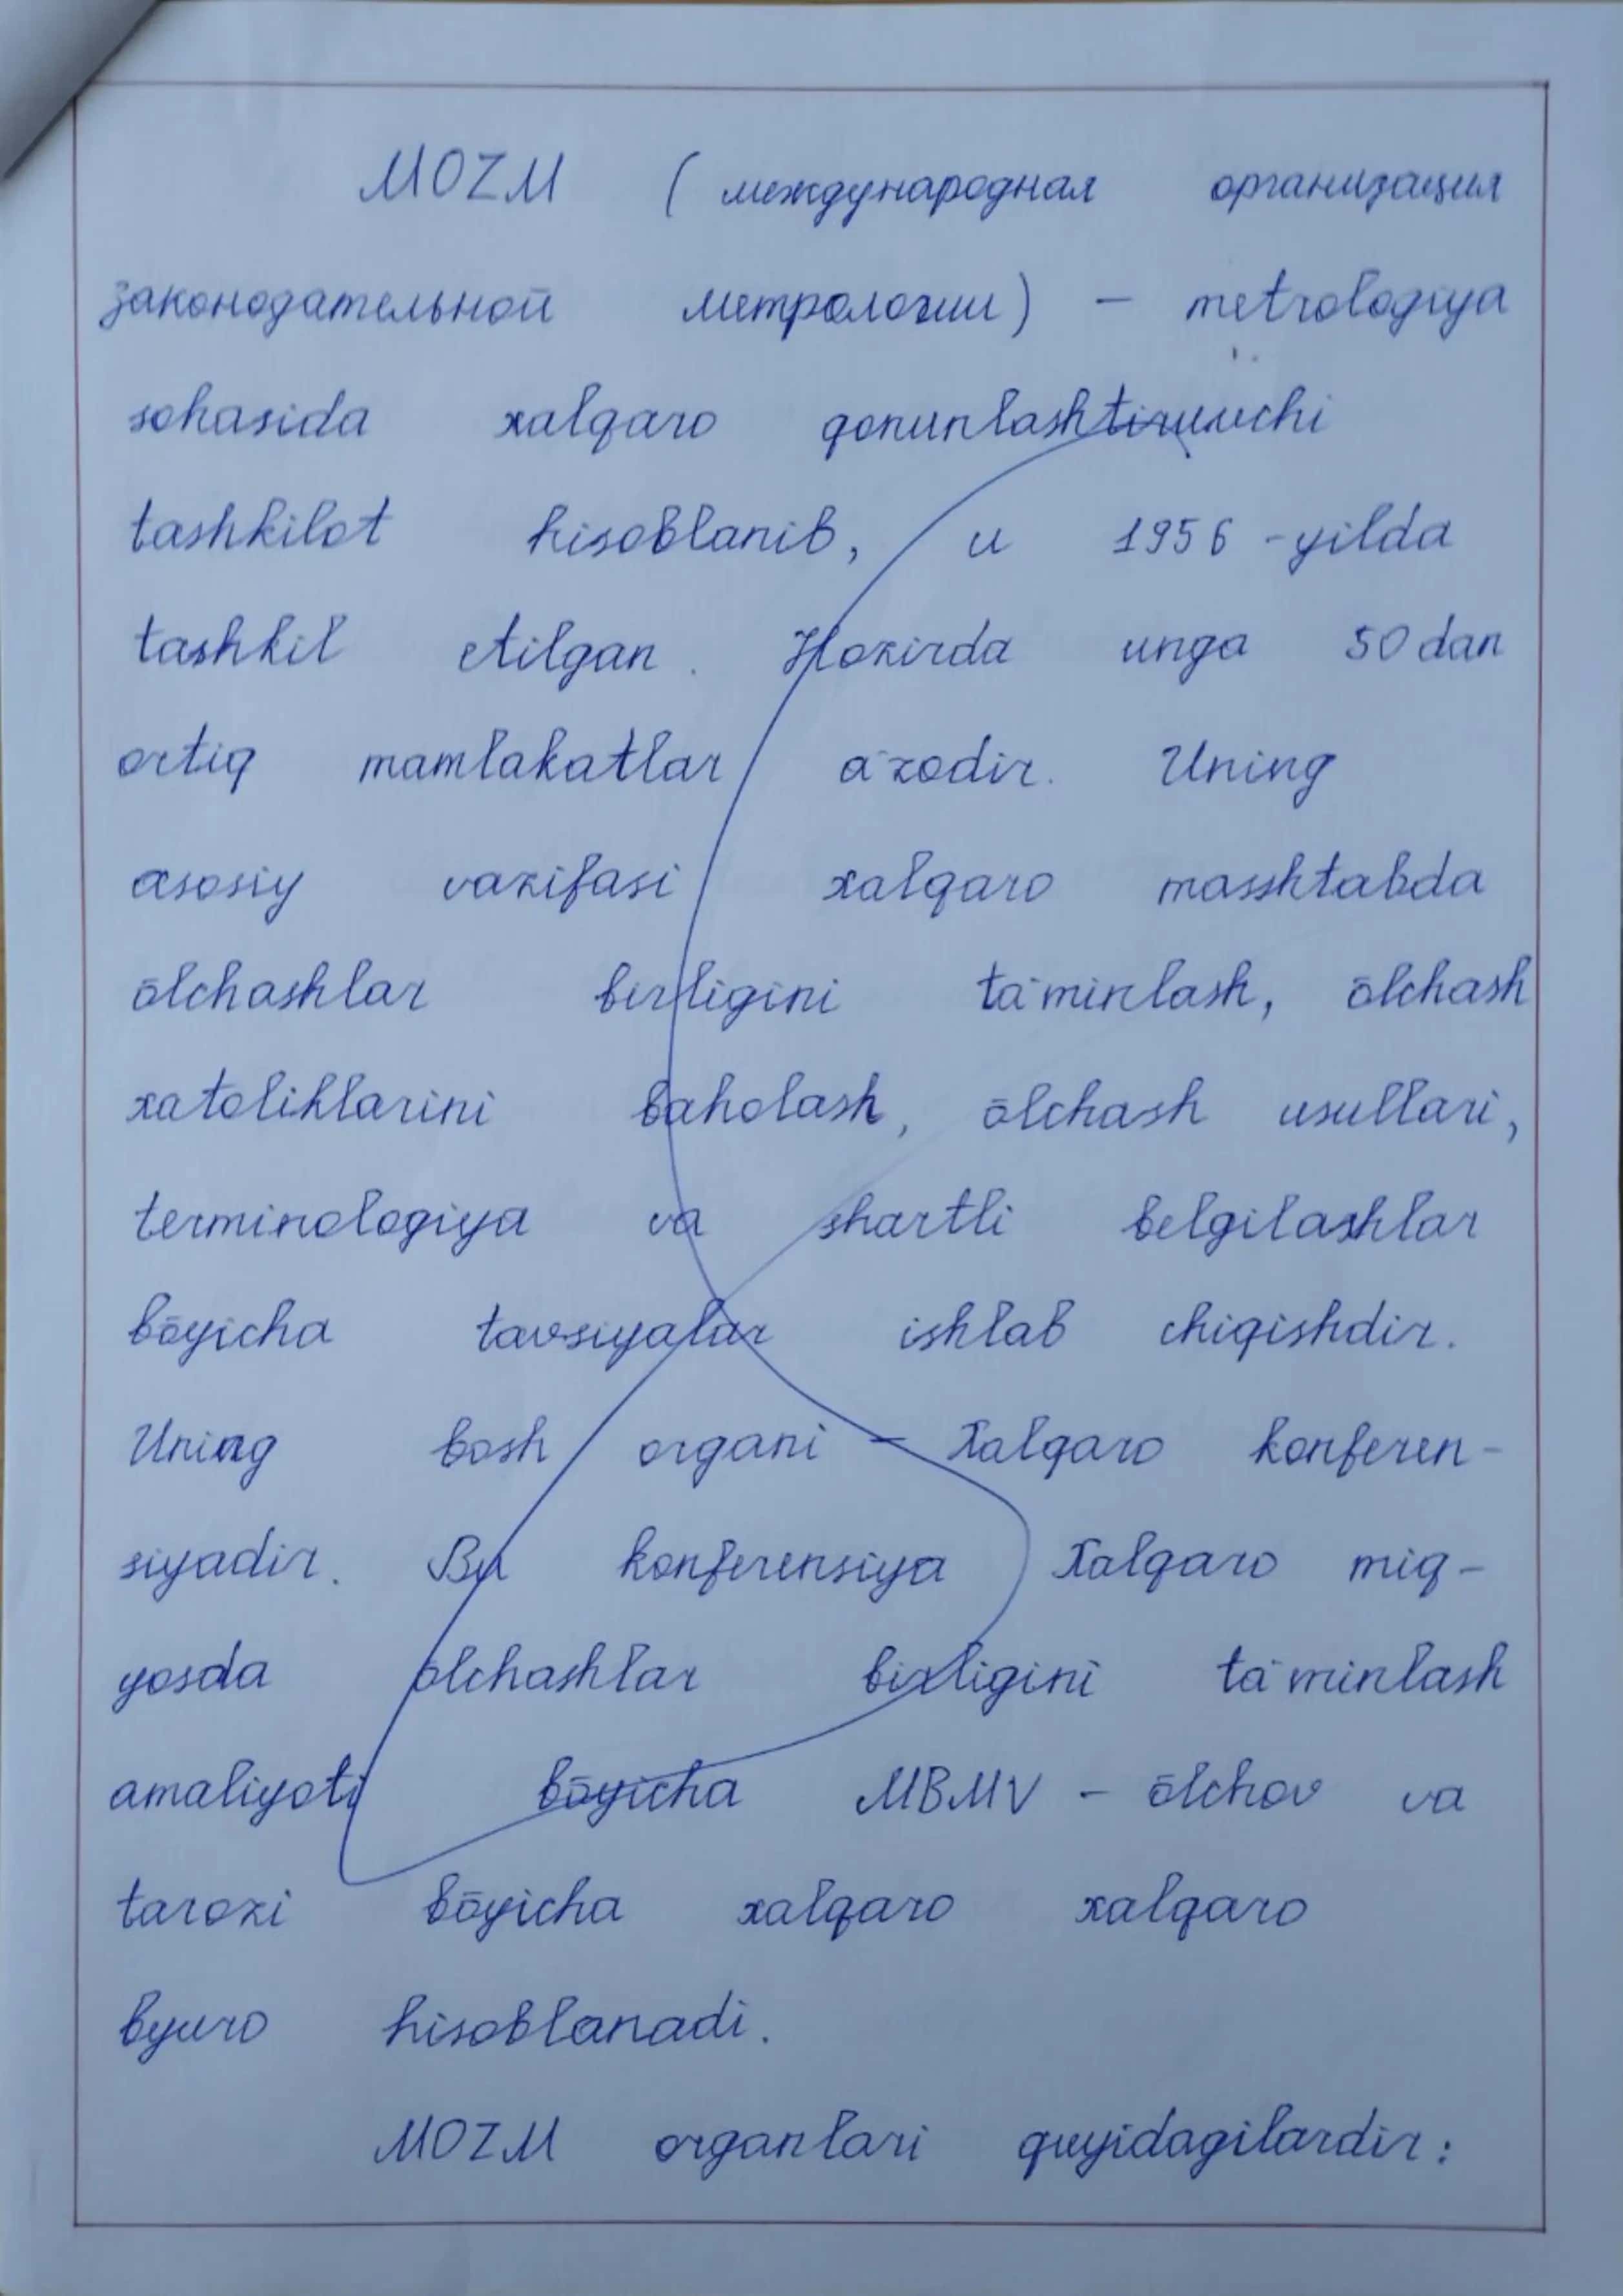 MOZM ( международная организация
законодательной метрологии) – metrologiya
sohasida xalqaro qonunlashtiruvchi
tashkilot hisoblanib, u 1956 -yilda
tashkil etilgan. Hozirda unga 50 dan
ortiq mamlakatlar a'zodir. Uning
asosiy vazifasi xalqaro masshtabda
ōlchashlar birligini ta'minlash, ōlchash
xatoliklarini baholash, ōlchash usullari,
terminologiya va shartli belgilashlar
bōyicha tavsiyalar ishlab chiqishdir.
Uning bosh organi – Xalqaro konferen-
siyadir. Bu konferensiya Xalqaro miq-
yosda ōlchashlar birligini ta'minlash
amaliyoti bōyicha MBMV – ōlchov va
tarozi bōyicha xalqaro xalqaro
byuro hisoblanadi.
MOZM organlari quyidagilardir: